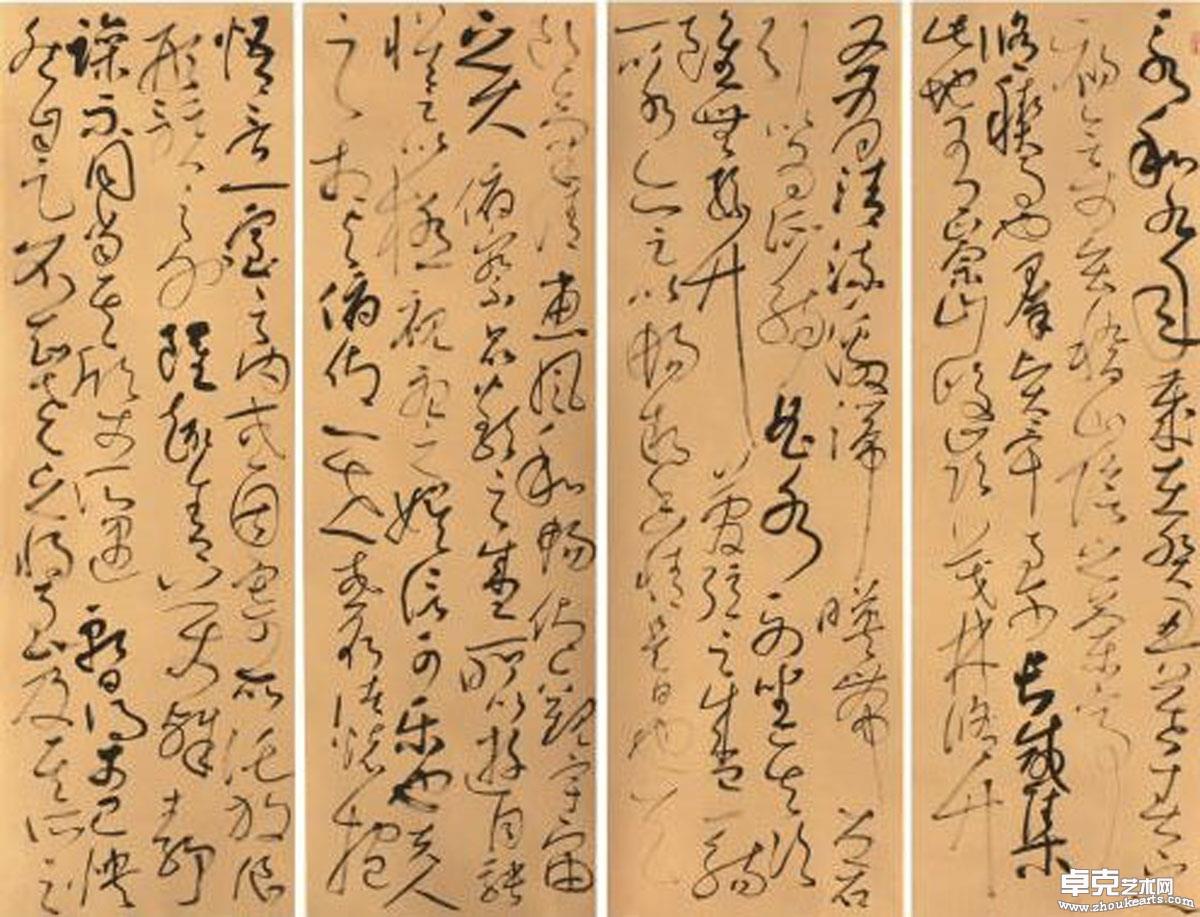 永和九年歲在癸丑暮春之
初會於會稽山陰之蘭亭
脩禊事也羣賢畢至少長咸集
此地有崇山峻領茂林脩竹
又有清流激湍映帶左右
引以為流觴曲水列坐其次
雖無絲竹管弦之盛一觴
一詠亦足以暢敘幽情是日也天
朗氣清惠風和暢仰觀宇宙
之大俯察品類之盛所以遊目騁
懷足以極視聽之娛信可樂也夫人
之相與俯仰一世或取諸懷抱
悟言一室之內或因寄所託放浪
形骸之外雖趣舍萬殊靜
躁不同當其欣於所遇暫得於己快
然自足不知老之將至及其所之
卓克艺术网
www.zhoukearts.com